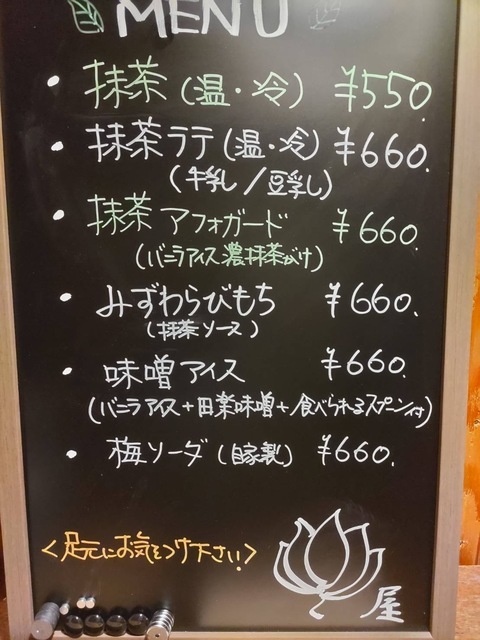 MENU
・抹茶 (温・冷) ¥550.
・抹茶ラテ (温・冷) ¥660.
(牛乳/豆乳)
・抹茶 アフォガード ¥660.
(バニラアイス濃抹茶がけ)
・みずわらびもち ¥660.
(抹茶ソース)
・味噌アイス ¥660.
(バニラアイス+田楽味噌+食べられるスプーン付)
・梅ソーダ (自家製) ¥660.
<足元にお気をつけ下さい!>
屋